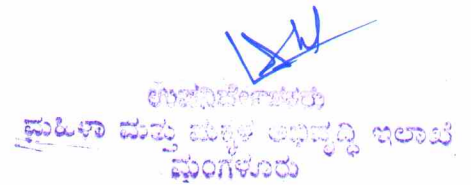 ಉಪನಿರ್ದೇಶಕರು
ಮಹಿಳಾ ಮತ್ತು ಮಕ್ಕಳ ಅಭಿವೃದ್ಧಿ ಇಲಾಖೆ
ಮಂಗಳೂರು